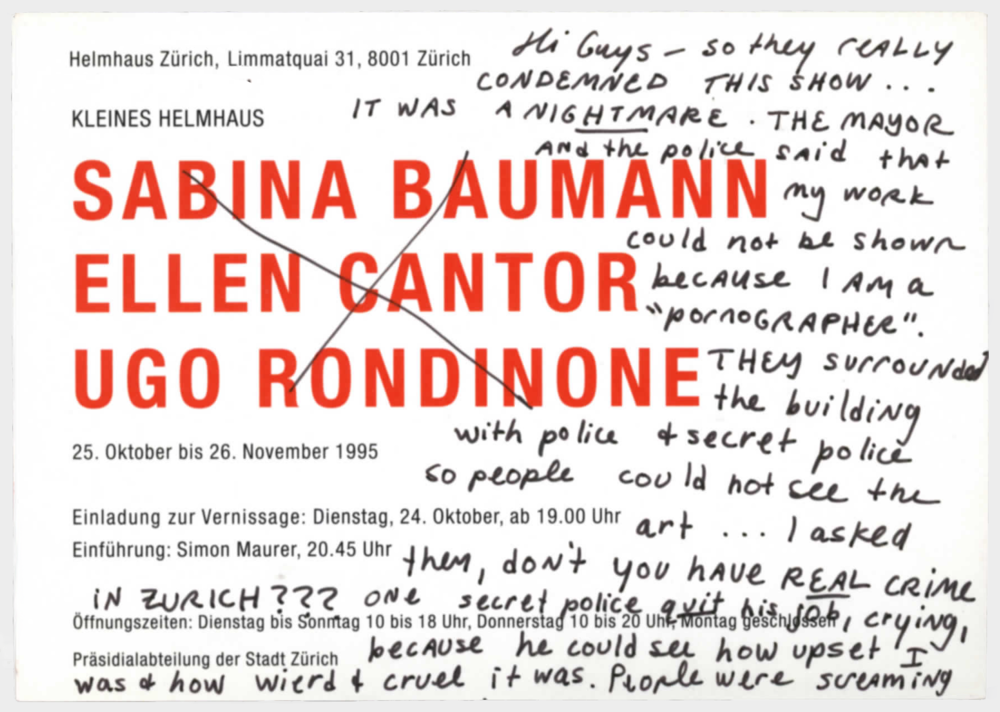 Helmhaus Zürich, Limmatquai 31, 8001 Zürich
KLEINES HELMHAUS
SABINA BAUMANN
ELLEN CANTOR
UGO RONDINONE
25. Oktober bis 26. November 1995
Einladung zur Vernissage: Dienstag, 24. Oktober, ab 19.00 Uhr
Einführung: Simon Maurer, 20.45 Uhr
Öffnungszeiten: Dienstag bis Sonntag 10 bis 18 Uhr, Donnerstag 10 bis 20 Uhr, Montag geschlossen
Präsidialabteilung der Stadt Zürich
Hi Guys – so they REALLY
CONDEMNED THIS SHOW...
IT WAS A NIGHTMARE. THE MAYOR
AND the police SAid that
my work
could not be shown
becAuse I AM a
"pornoGRAPHER".
THEY surrouNded
the building
with police & secret police
so people could not see the
art ... I asked
them, don't you hAve REAL CRIME
iN ZURICH??? ONE secret police quit his job, crying,
becAuse he could see how upset I
was & how wierd & cruel it was. People were screaming